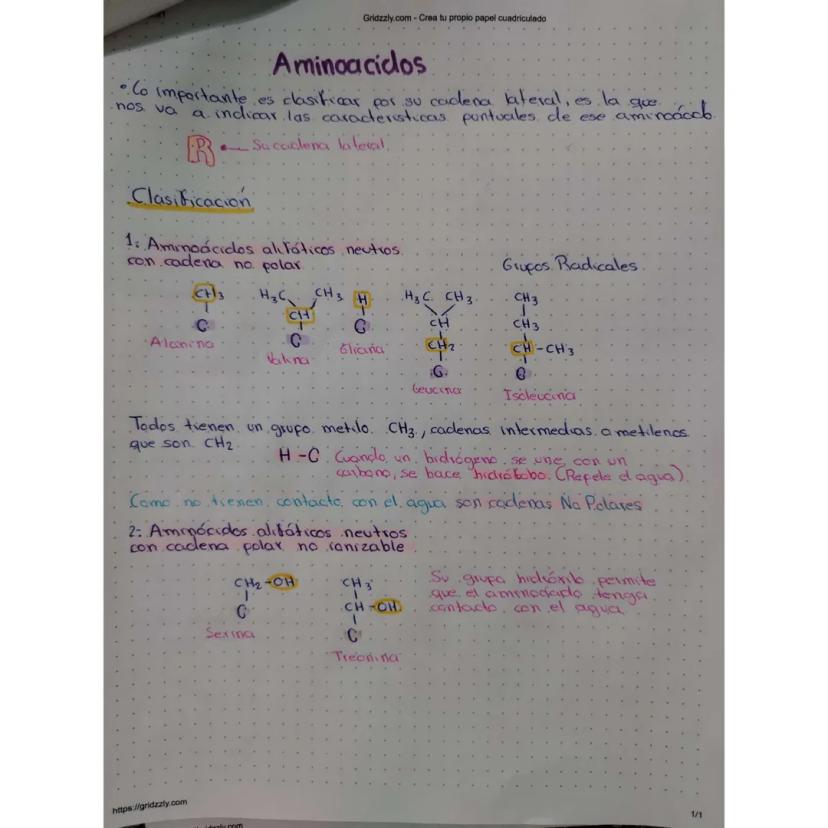 Gridzzly.com - Crea tu propio papel cuadriculado
Aminoacidos
• Lo importante es clasificar por su cadena lateral, es la que
nos va a indicar las características puntuales de ese aminoácido.
R — Su cadena lateral
Clasificación
1: Aminoácidos alifáticos neutros
con cadena no polar
Grupos Radicales
CH3
C
Alanina
H3C CH3
CH
C
Valina
H
C
Glicina
H3C CH3
CH
CH2
C
Leucina
CH3
CH3
CH-CH3
C
Isoleucina
Todos tienen un grupo metilo CH3, cadenas intermedias o metilenos
que son CH2
H-C Cuando un hidrógeno se une con un
carbono, se hace hidrófobo (Repele el agua)
Como no tienen contacto con el agua son cadenas No Polares
2: Aminoácidos alifáticos neutros
con cadena polar no ionizable
CH2-OH
C
Serina
CH3
CH-OH
C
Treonina
Su grupo hidróxilo permite
que el aminoácido tenga
contacto con el agua
https://gridzzly.com
1/1